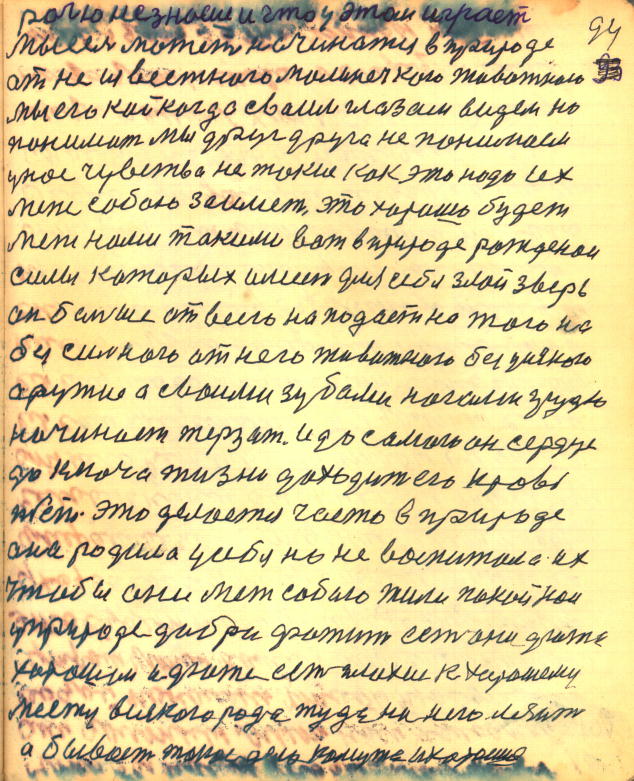 ролю не знаем и что у этом играет
94
мысем можетъ начинатся в природе
от не известного моминечкого животного
мы его кой когда своим глазам видем но
понимат мы друг друга не понимаем
у нас чувства не такие как это надо их
меж собою заимет, это хорошо будет
меж нами такими вот в природе рожденои
силы которых имеет для себя злой зверь
он больше от всего нападает на того не
бы силного от него животного без уякого
аружие а своими зубами ногами грудью
начинает терзат. И до самого он сердце
до ключа жизни доходит его кровь
пєть. это делается часто в природе
она родила у себя но не воспитала их
чтобы они меж собою жили покойнои
у природе добри                   есть они даже
хорошии и даже есть плохие к хорошему
месту всякого рода туда на него лезит
а бывает такое дело кому та и хорошо